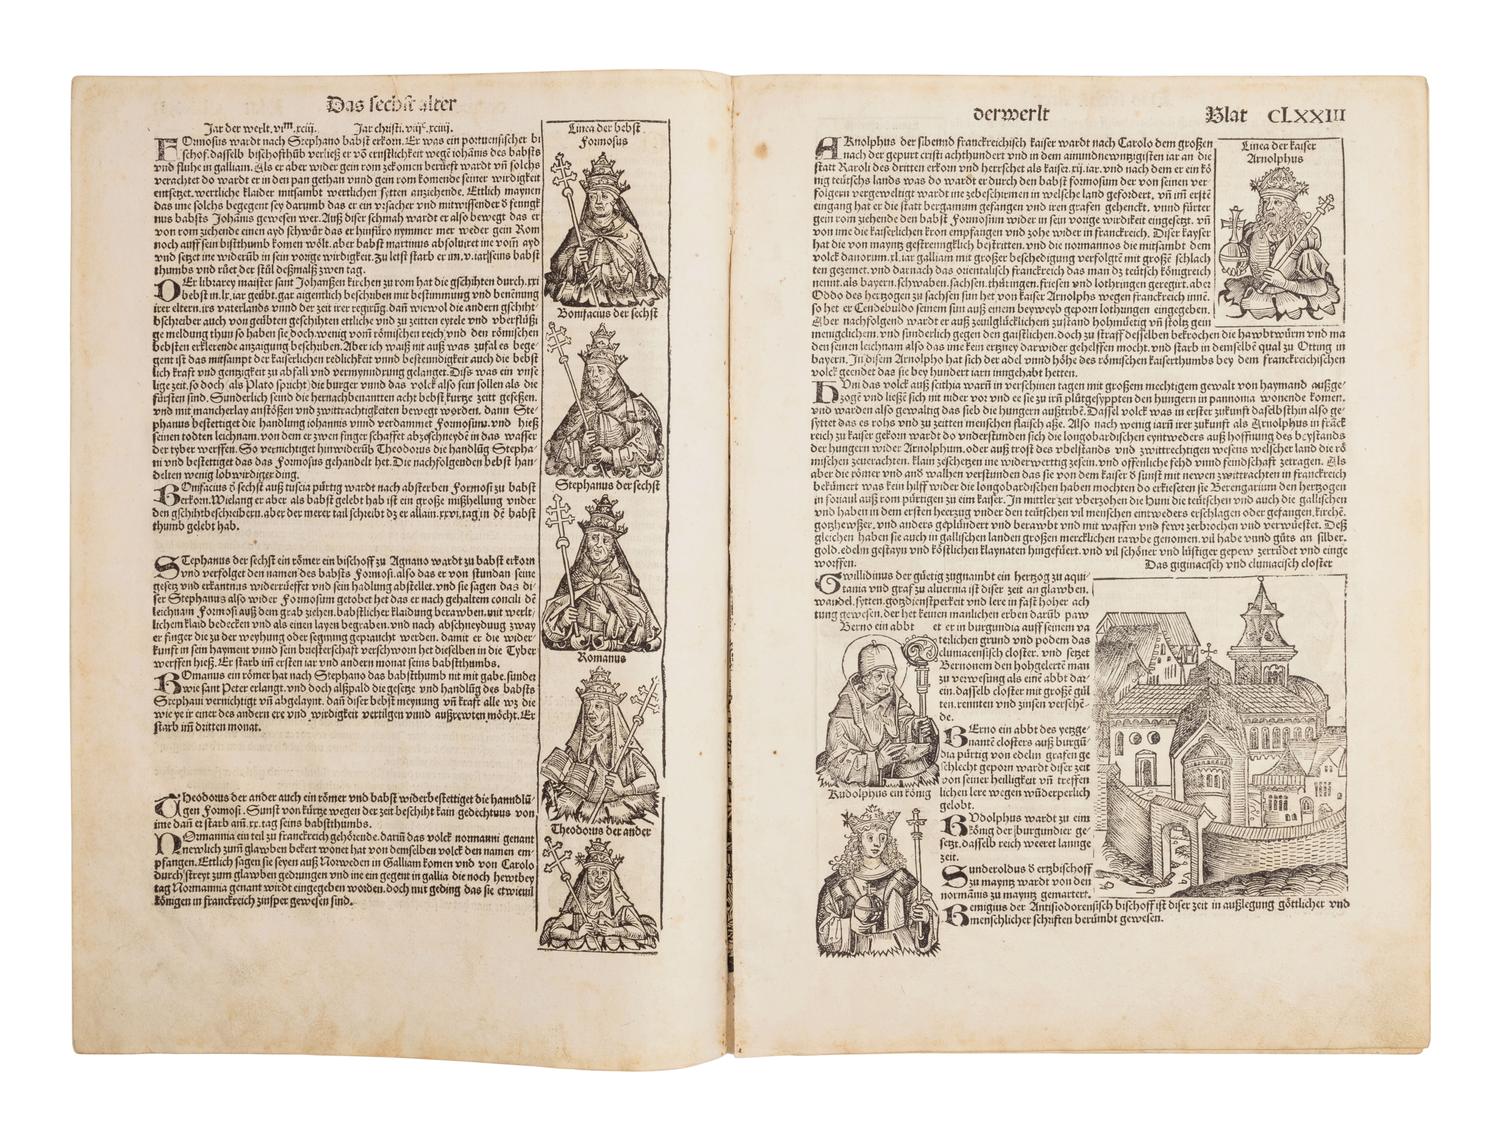 Das sechst alter
Jar der werlt. vi^m.xciij. Jar christi. viij^c.xciiij.
Linea der bebst
Formosus
FOrmosus wardt nach Stephano babst erkorn. Er was ein portuensischer bi
schof. dasselb bischofthůb verließ er vō ernstlichkeit wegē iohānis des babsts
vnd fluhe in galliam. Als er aber wider gein rom zekomen berüefft wardt vñ solchs
verachtet do wardt er in den pan gethan vnd gein rom komende seiner wirdigkeit
entsetzt. wertliche klaider mitsambt wertlichen sitten anziehende. Ettlich maynen
das ime solchs begegent sey darumb das er ein vrsacher vnd mitwissender d̓ fengk
nus babsts Johānis gewesen wer. Auß diser schmah wardt er also bewegt das er
von rom ziehende einen ayd schwůr das er hinfüro nymmer mer weder gein Rom
noch auff sein bistthumb komen wölt. aber babst martinus absoluiret ine voīm ayd
vnd setzet ine widerūb in sein vorige wirdigkeit. zu letst starb er im. v. iar seins babst
thumbs vnd rüet der stůl deßmalß zwen tag.
DEr librarey maister sant Johanßen kirchen zu rom hat die gschihten durch. xxi
bebst in. lx. iar geübt. gar aigentlich beschriben mit bestimmung vnd benēnung
irer eltern. irs vaterlands vnnd der zeit irer regirūg. dañ wiewol die andern gschiht
bschreiber auch von geübten geschihten ettliche vnd zu zeitten eytele vnd vberflüßi
ge meldung thun so haben sie doch wenig vom römischen reich vnd den römischen
bebsten erklerende anzaigung beschriben. Aber ich waiß nit auß was zufal es bege-
gent ist das mitsampt der kaiserlichen redlichkeit vnnd bestendigkeit auch die bebst
lich kraft vnd gentzigkeit zu abfall vnd vermyndrung gelanget. Diß was ein vnse
lige zeit. so doch als Plato spricht die burger vnnd das volck also sein sollen als die
fürsten sind. Sunderlich send die hernachbenantten acht bebst kurtze zeit gesessen.
vnd mit mancherlay anstößen vnd zwittrachtigkeiten bewegt worden. dann Ste-
phanus bestettiget die handlung iohannis vnnd verdammet Formosum. vnd hieß
seinen todten leichnam. von dem er zwen finger schaffet abzeschneydē in das wasser
der tyber werffen. So vernichtiget hinwiderūb Theodorus die handlūg Stepha-
ni vnd bestettiget das das Formosus gehandelt het. Die nachfolgenden bebst han-
delten wenig lobwirdiger ding.
Bonifacius der sechst
BOnifacius d̓ sechst auß tuscia pürtig wardt nach absterben Formosi zu babst
erkorn. Wielang er aber als babst gelebt hab ist ein große mißhellung vnder
den gschihtbschreibern. aber der merer tail schreibt dz er allain. xxvi. tag in dē babst
thumb gelebt hab.
Stephanus der sechst
STephanus der sechst ein römer ein bischoff zu Agnano wardt zu babst erkorn
vnd verfolget den namen des babsts Formosi. also das er von stundan seine
gesetz vnd erkantnus widerrüeffet vnd sein handlung abstellet. vnd sie sagen das di-
ser Stephanus also wider Formosum getobet het das er nach gehaltem concili dē
leichnam Formosi auß dem grab ziehen. babstlicher klaidung berawben. mit werlt-
lichem klaid bedecken vnd als einen layen begraben. vnd nach abschneydung zway
er finger die zu der weyhung oder segnung gepraucht werden. damit er die wider
kunft in sein hayment vnnd sein briesterschaft verschworn het dieselben in die Tyber
werffen hieß. Er starb im̄ ersten iar vnd andern monat seins babstthumbs.
Romanus
ROmanus ein römer hat nach Stephano das babstthumb nit mit gabe. sunder
wie sant Peter erlangt. vnd doch alßpald die gesetze vnd handlūg des babsts
Stephani vernichtigt vñ abgelaynt. dañ diser bebst meynung vñ kraft alle wz die
wie ye ir einer des andern ere vnd wirdigkeit vertilgen vnnd außrewten möcht. Er
starb im̄ dritten monat.
Theodorus der ander
THeodorus der ander auch ein römer vnd babst widerbestettiget die hanndlū-
gen Formosi. Sunst von kürtze wegen der zeit beschiht kain gedechtnus von
ime dañ er starb am̄. xx. tag seins babstthumbs.
NOrmannia ein teil zu franckreich gehörende. darūm das volck normanni genant
newlich zum̄ glawben bekert wonet hat von demselben volck den namen em-
pfangen. Ettlich sagen sie seyen auß Norweden in Galliam komen vnd von Carolo
durch streyt zum glawben gedrungen vnd ine ein gegent in gallia die noch hewtbey
tag Normannia genant wirdt eingegeben worden. doch mit geding das sie etwieuil
königen in franckreich zinßper gewesen sind.
der werlt
Blat CLXXIII
Linea der kaiser
Arnolphus
ARnolphus der sibennd franckreichisch kaiser wardt nach Carolo dem großen
nach der gepurt cristi achthundert vnd in dem ainundnewntzigisten iar an die
statt Karoli des dritten erkorn vnd herrschet als kaiser. xij. iar. vnd nach dem er ein kö
nig teütschs lands was do wardt er durch den babst formosum der von seinen ver
folgern vergeweltigt wardt ine zebeschirmen in welsche land gefordert. vñ im̄ erstē
eingang hat er die statt bergamum gefangen vnd iren grafen gehenckt. vnnd fürter
gein rom ziehende den babst Formosum wider in sein vorige wirdikeit eingesetzt. vñ
von ime die kaiserlichen kron empfangen vnd zohe wider in franckreich. Diser kayser
hat die von mayntz gestrenngklich bestritten. vnd die normannos die mitsambt dem
volck danorum. xl. iar galliam mit großer beschedigung verfolgtē mit großer schlach
ten gezemet. vnd darnach das orientalisch franckreich das man dz teütsch königreich
nennt. als bayern. schwaben. sachsen. thüringen. friesen vnd lothringen geregirt. aber
Oddo des herzogen zu sachsen sun het von kaiser Arnolphs wegen franckreich innē.
so het er Cendebuldo seinem sun auß einem beyweyb geporn lothringen eingegeben.
Aber nachfolgend wardt er auß zeuilglücklichem zustand hohmütig vñ stoltz gein
menigclichem. vnd sunderlich gegen den gaistlichen. doch zu straff desselben bekrochen die hawbtwürm vnd ma
den seinen leichnam also das ime kein ertzney darwider gehelffen mocht. vnd starb in demselbē qual zu Otting in
bayern. In disem Arnolpho hat sich der adel vnnd höhe des römischen kaiserthumbs bey dem franckreichischen
volck geendet das sie bey hundert iarn inngehabt hetten.
HVni das volck auß scithia warn in verschinen tagen mit großem mechtigem gewalt von haymand außge-
zogē vnd ließen sich nit nider vor vnd ee sie zu irn plůtgesyppten den hungern in pannonia wonende komen.
vnd warden also gewaltig das sieb die hungern außtribē. Dassel volck was in erster zukunft daselbsthin also ge-
syttet das es rohs vnd zu zeitten menschen flaisch aße. Also nach wenig iarn irer zukunft als Arnolphus in franck
reich zu kaiser gekorn wardt do vnderstunden sich die longobardischen eyntweders auß hoffnung des beystands
der hungern wider Arnolphum. oder auß trost des vbelstands vnd zwittrechtigen wesens welscher land die rö
mischen zeuerachten. klain zeschetzen ine widerwerttig zesein. vnd offenliche fehd vnnd feindschaft zetragen. Als
aber die römer vnd and̓ walhen verstunden das sie von dem kaiser d̓ sunst mit newen zwittrachten in franckreich
bekümert was kein hilff wider die longobardischen haben mochten do erkieseten sie Berengarium den hertzogen
in foriaul auß rom pürtigen zu eim kaiser. In mittler zeit vberzohen die huni die teütschen vnd auch die gallischen
vnd haben in dem ersten heerzug vnder den teütschen vil menschen entweders erschlagen oder gefangen. kirchē.
gotzhewser. vnd anders geplündert vnd berawbt vnd mit waffen vnd fewr zerbrochen vnd verwüestet. Deß
gleichen haben sie auch in gallischen landen großen mercklichen rawbe genomen. vil habe vnnd gůts an silber.
gold. edelm gestayn vnd köstlichen klaynaten hingefürt. vnd vil schöner vnd lüstiger gepew zerrüdet vnd einge
worffen.
Das giginacisch vnd cluniacisch closter
GWillidinus der güetig zugnambt ein hertzog zu aqui-
tania vnd graf zu aluernia ist diser zeit an glawben.
wandel. sytten. gotzdienstperkeit vnd lere in fast hoher ach
tung gewesen. der het keinen manlichen erben darūb paw
Berno ein abbt
et er in burgundia auff seinem va
terlichen grund vnd podem das
cluniacensisch closter. vnd setzet
Bernonem den hohgelertē man
zu verwesung als einē abbt dar-
ein. dasselb closter mit großē gül
ten. rennten vnd zinsen versehē-
de.
BErno ein abbt des yetzge-
nantē closters auß burgū-
dia pürtig von edeln grafen ge
schlecht geporn wardt diser zeit
von seiner heilligkeit vñ treffen
lichen lere wegen wūderperlich
gelobt.
Rudolphus ein könig
RVdolphus wardt zu eim
könig der burgundier ge-
setzt. dasselb reich weeret lannge
zeit.
SUnderoldus d̓ ertzbischoff
zu mayntz wardt von den
normānis zu mayntz gemartert.
REmigius der Antisiodorensisch bischoff ist diser zeit in außlegung göttlicher vnd
menschlicher schriften berümbt gewesen.